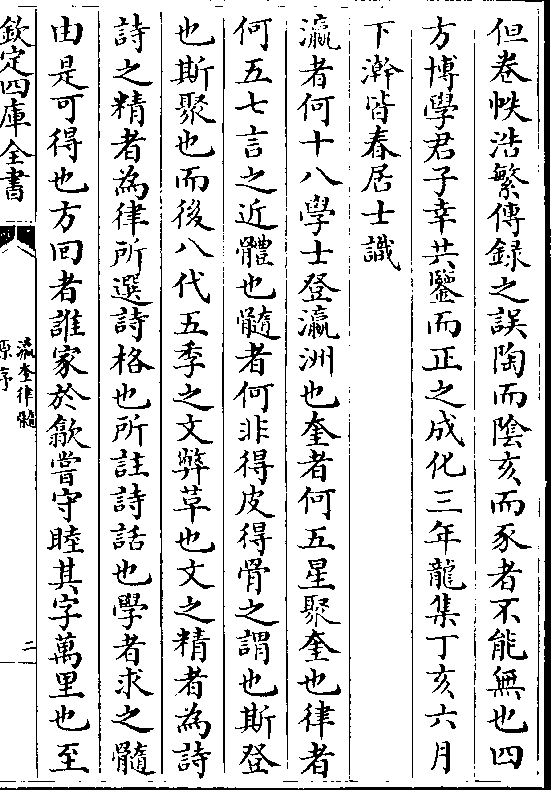 但卷帙浩繁傳録之誤陶而陰亥而豕者不能無也四
方博學君子幸共鑒而正之成化三年龍集丁亥六月
下澣皆春居士識
瀛者何十八學士登瀛洲也奎者何五星聚奎也律者
何五七言之近體也髓者何非得皮得骨之謂也斯登
也斯聚也而後八代五季之文弊革也文之精者為詩
詩之精者為律所選詩格也所註詩話也學者求之髓
由是可得也方回者誰家於歙嘗守睦其字萬里也至
欽定四庫全書
瀛奎律髓
原序
二